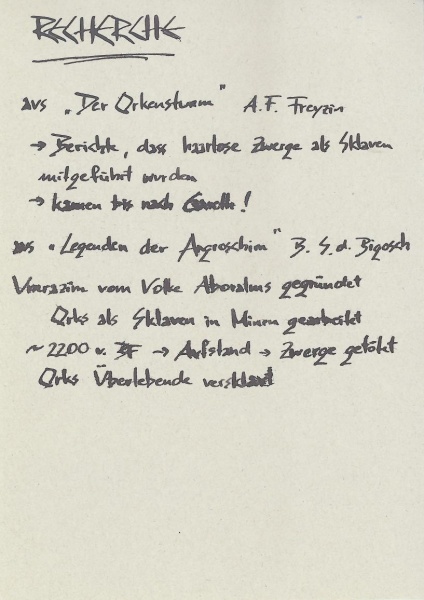 RECHERCHE
aus „Der Orkensturm“ A.F. Freyzin
→ Berichte, dass haarlose Zwerge als Sklaven
mitgeführt wurden
→ kamen bis nach !
aus „Legenden der Angroschim“ B. S. d. Bigosch
Umrazim vom Volke Aboralms gegründet
Orks als Sklaven in Minen gearbeitet
~ 2200 v. BF → Aufstand → Zwerge getötet
Orks Überlebende versklavt